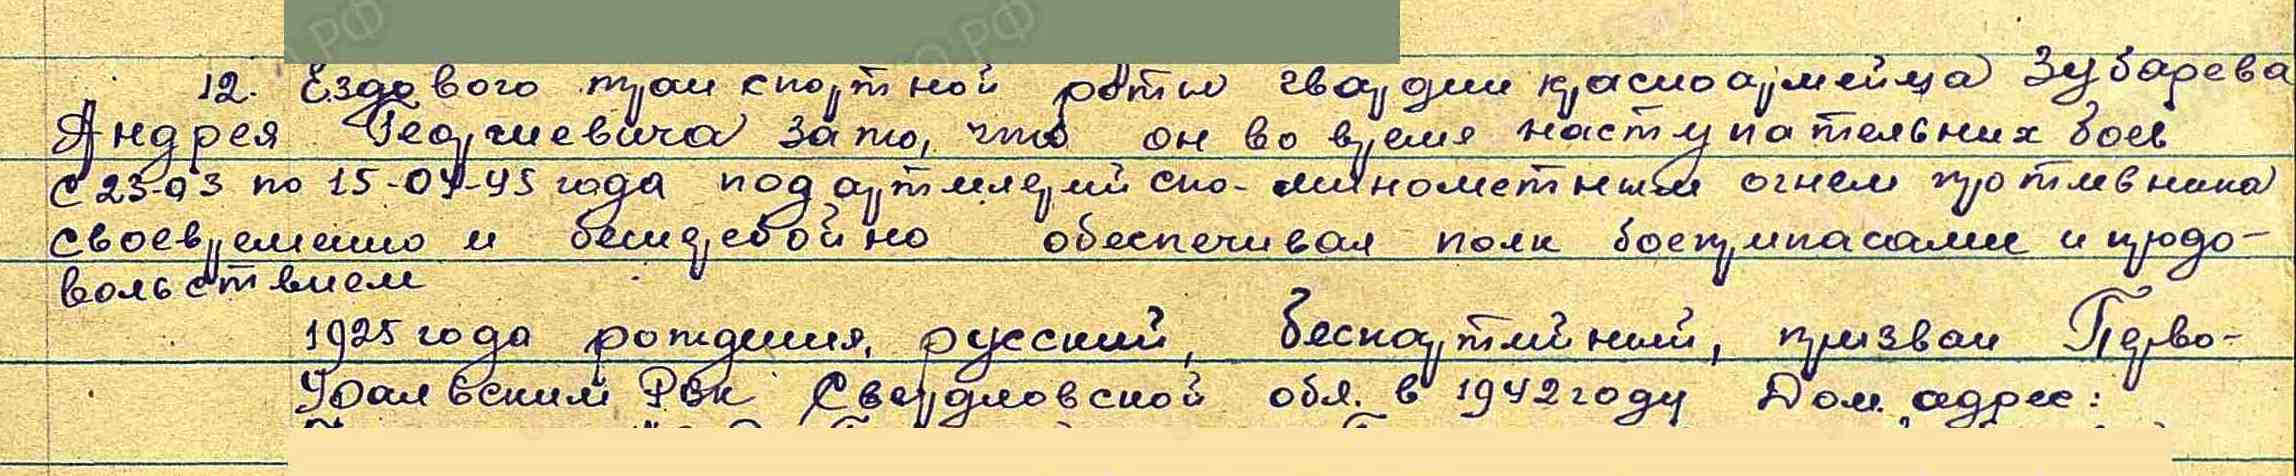 12. Ездового транспортной роты гвардии красноармейца Зубарева
Андрея Георгиевича за то, что он во время наступательных боев
с 23-03 по 15-04-45 года под артиллерийско-минометным огнем противника
своевременно и бесперебойно обеспечивал полк боеприпасами и продо-
вольствием
1925 года рождения, русский, беспартийный, призван Перво-
Уральским РВК Свердловской обл. в 1942 году Дом. адрес: